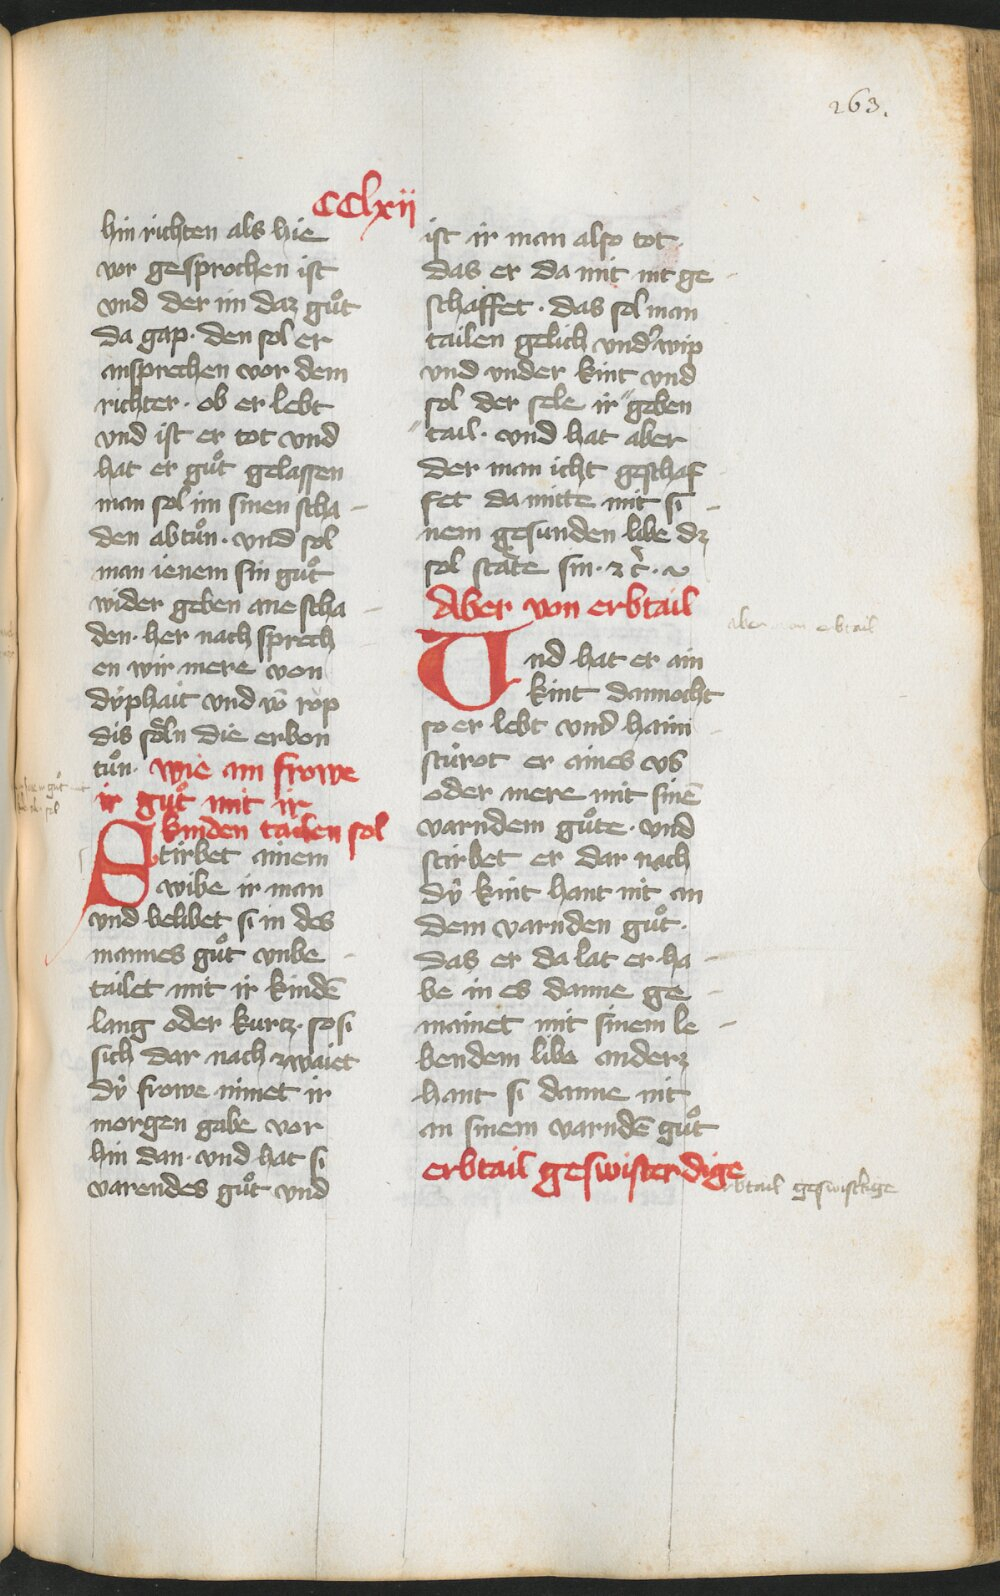 263.
CClxii
hin richten als hie
vor gesprochen ist
vnd der im daz guͦt
da gap · den sol er
ansprechen vor dem
richter · ob er lebt
vnd ist er tot vnd
hat er guͦt gelassen
man sol im sinen scha-
den abtuͦn · vnd sol
man ienem sin guͦt
wider geben ane scha-
den · her nach sprech
en wir mere von
dÿphait vnd vō rop
dis soͤln die erbon
tuͦn · wie ain frowe
ir guͦt mit ir
kinden tailen sol
Stirbet ainem
wibe ir man
vnd belibet si in des
mannes guͦt vnbe-
tailet mit ir kindē
lang oder kurtz · so si
sich dar nach zwaiet
dÿ frowe nimet ir
morgen gabe vor
hin dan · vnd hat si
varendes guͦt vnd
ist ir man also tot
das er da mit nit ge-
schaffet · das sol man
tailen gelich vnd' wip
vnd vnder kint vnd
sol der sele ir " geben
" tail · vnd hat aber
der man icht geschaf-
fet da mitte mit si-
nem gesunden libe dz
sol staͤte sin · ⁊ c̄ ·
Aber von erbtail
Vnd hat er ain
kint dannocht
so er lebt vnd haim-
stuͤrot er aines vs
oder mere mit sinē
varndem guͦte · vnd
stirbet er dar nach
dÿ kint hant nit an
dem varnden guͦt ·
das er da lat er ha-
be in es danne ge-
mainet mit sinem le-
bendem libe anderz
hant si danne nit
an sinem varndē guͦt
erbtail geswisterdige
aber von erbtail
erbtail geswistⸯige